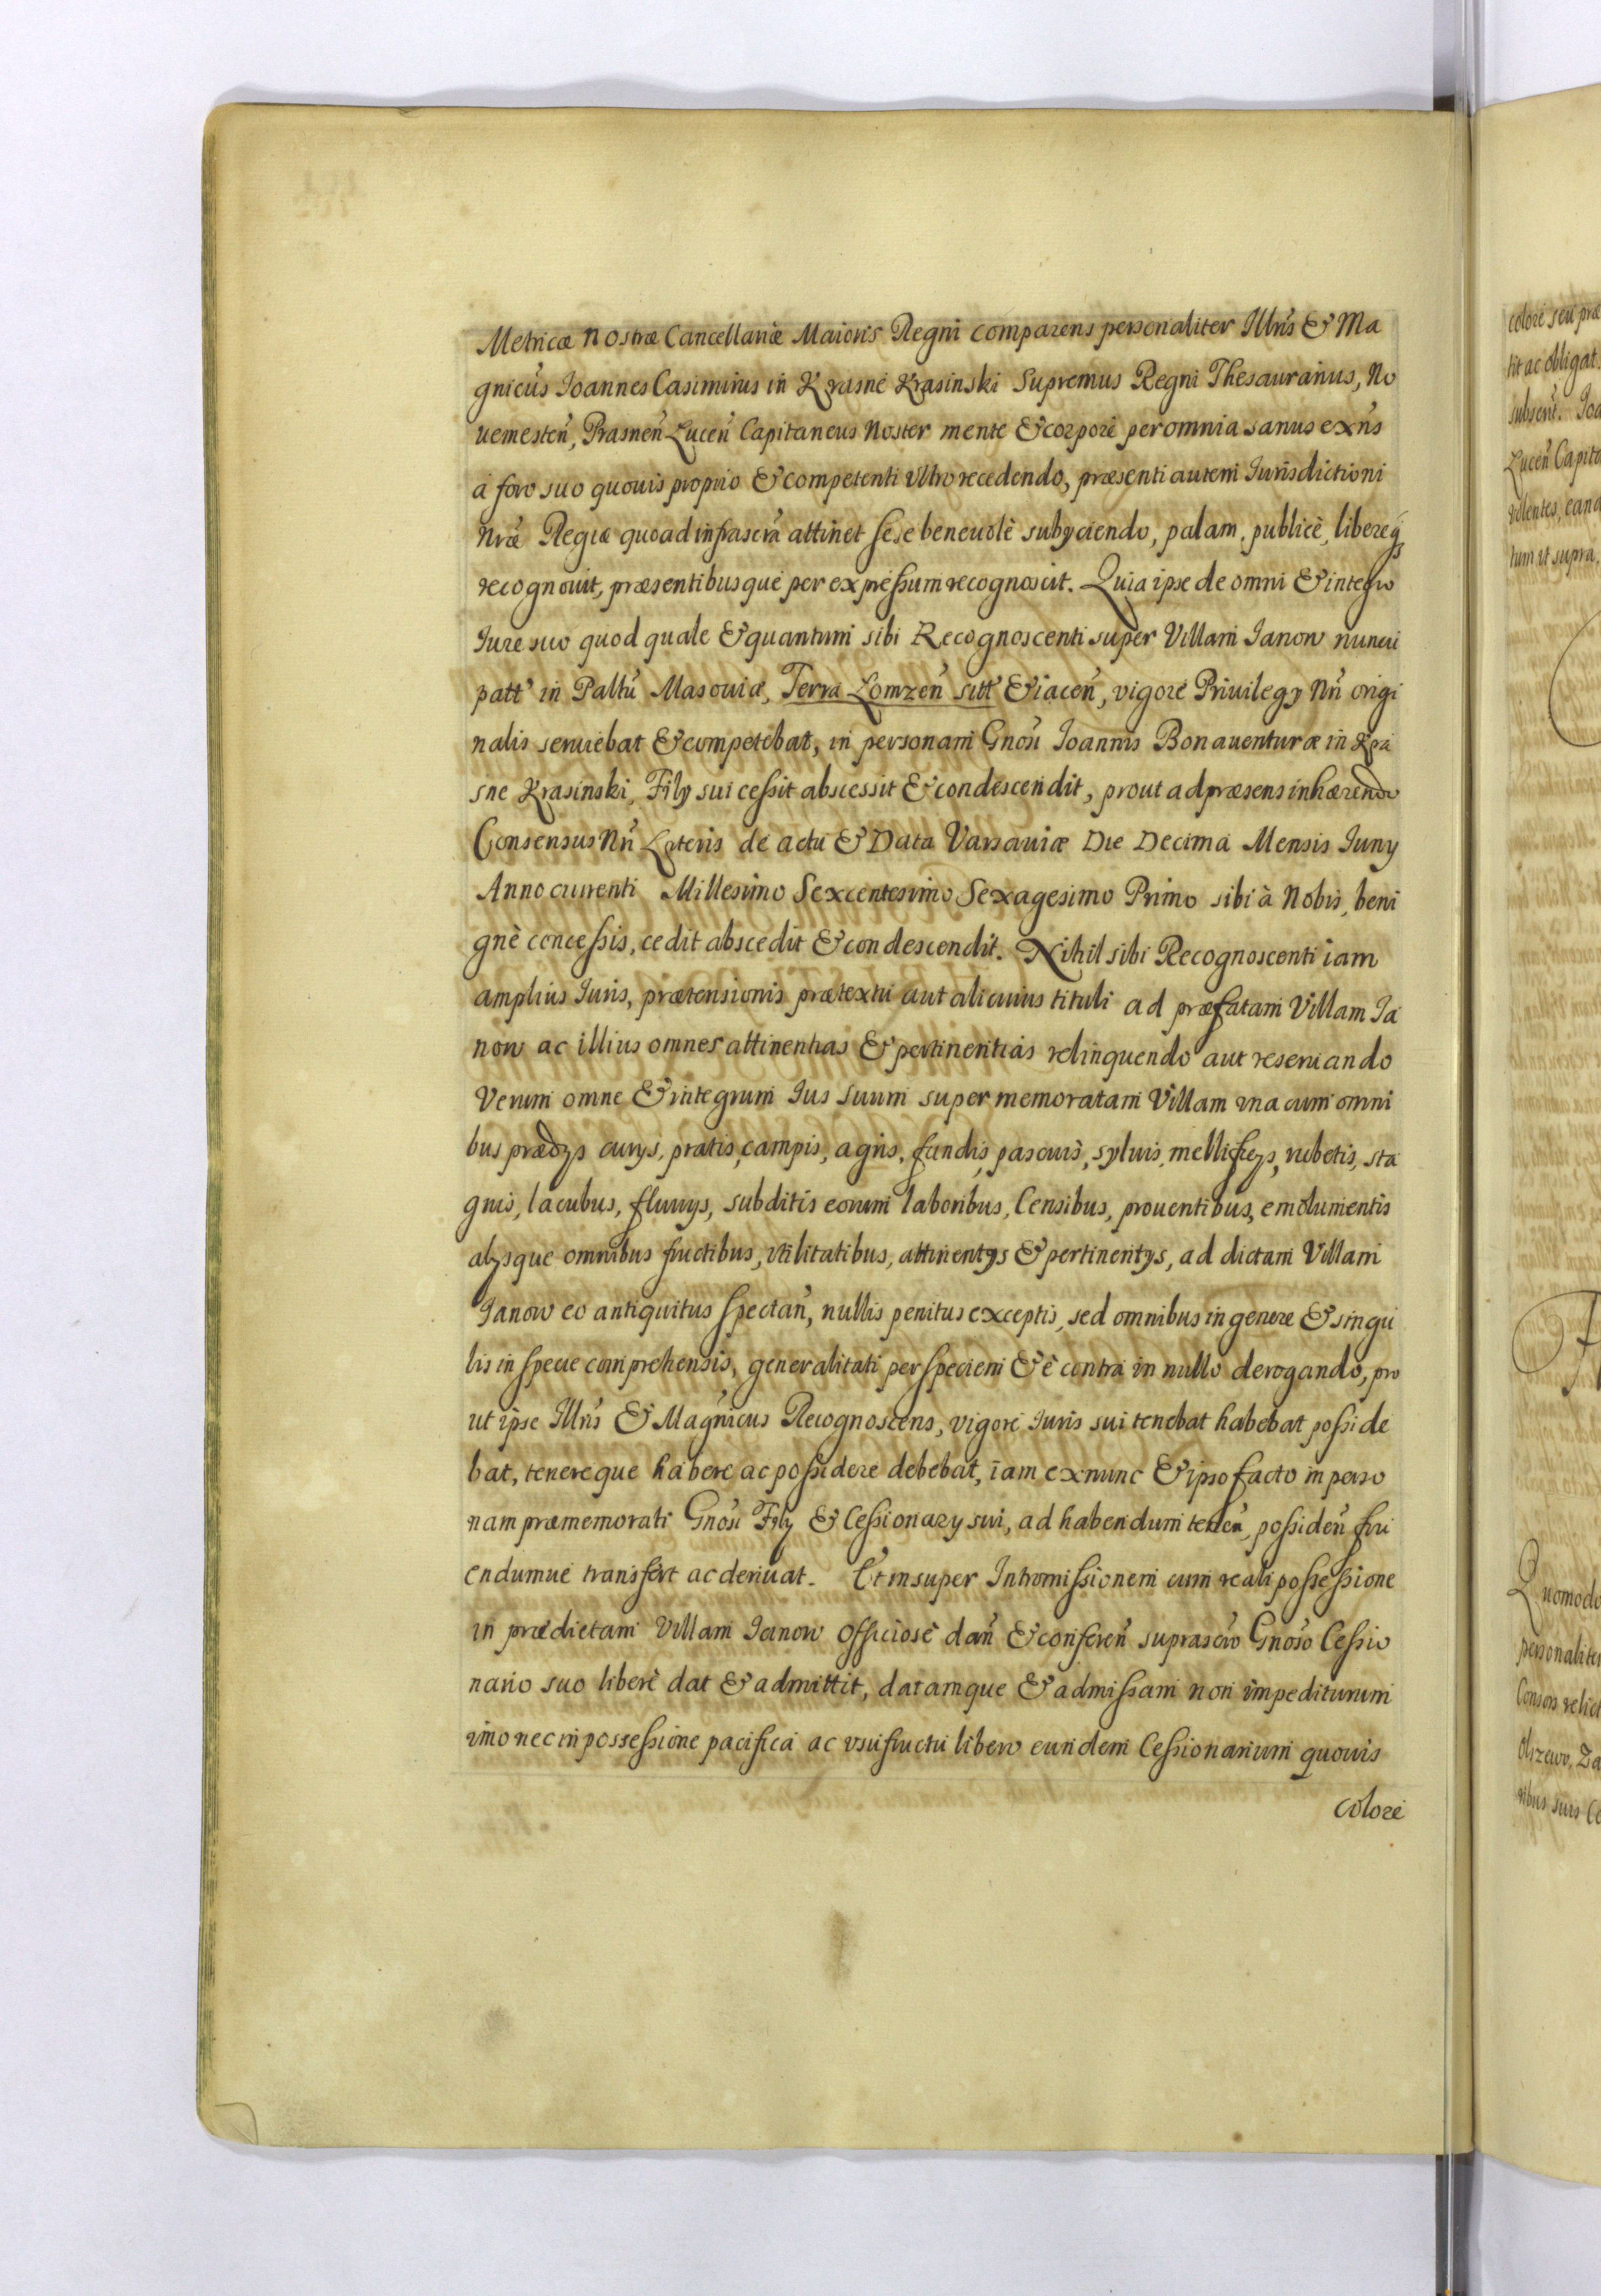 Metricæ Nostræ Cancellariæ Maioris Regni comparens personaliter Illris & Ma
gnicus Ioannes Casimirus in Krasne Krasinski Supremus Regni Thesaurarius, No
uemesten̄, Prasnen̄ Lucen̄ Capitaneus Noster mente & corpore per omnia sanus exn̄s
à foro suo quouis proprio & competenti vltro recedendo, præsenti autem Iurisdictioni
Nr̄æ Regiæ quoad infrascr̄a attinet sese beneuolè subyciendo, palam, publicè, libereq3
recognouit, præsentibusque per expressum recognoscit. Quia ipse de omni & integro
Iure suo quod quale & quantum sibi Recognoscenti super Villam Ianow nuncu
patt in Palt̄u Masouiæ, Terra Lomzen̄ sitt & iacen̄, vigore Priuilegy Nr̄i origi
nalis seruiebat & competebat, in personam Gnosi Ioannis Bonauenturæ in Kra
sne Krasinski, Fily sui cessit abscessit & condescendit, prout ad præsens inhærendo
Consensus Nr̄i Lateris de actu & Data Varsauiæ Die Decima Mensis Iuny
Anno currenti Millesimo Sexcentesimo Sexagesimo Primo sibi à Nobis, beni
gnè concessis, cedit abscedit & condescendit. Nihil sibi Recognoscenti iam
amplius Iuris, prætensionis prætextu aut alicuius tituli ad præfatam Villam Ia
now ac illius omnes attinentias & pertinentias relinquendo aut reseruando
Verum omne & integrum Ius suum super memoratam Villam vna cum omni
bus prædys curys, pratis, campis, agris, fundis, pascuis, syluis, mellificys, rubetis, sta
gnis, lacubus, fluuys, subditis eorum laboribus, Censibus, prouentibus, emolumentis
alysque omnibus fructibus, vtilitatibus, attinentys & pertinentys, ad dictam Villam
Ianow eo antiquitus spectan̄, nullis penitus exceptis, sed omnibus in genere & singu
lis in specie comprehensis, generalitati per speciem & è contra in nullo derogando, pro
ut ipse Illris & Magnicus Recognoscens, vigore Iuris sui tenebat habebat posside
bat, tenereque habere ac possidere debebat, iam ex nunc & ipso facto in perso
nam præmemorati Gnosi Fily & Cessionary sui, ad habendum tenen̄, possiden̄ fru
endumue transfert ac deriuat. Et insuper Intromissionem cum reali possessione
in prædictam Villam Ianow officiosè dan̄ & conferen̄ suprascr̄o Gnoso Cessio
nario suo liberè dat & admittit, datamque & admissam non impediturum
imo nec in possessione pacifica ac vsufructu libero eundem Cessionarium quouis
colore
colore seu præ
tit ac obligat.
Lucen̄ Capita
volentes, eand
tum vt supra.
Quomodo
personaliter
Consors relict
Olszewo, Za
ribus suis Co